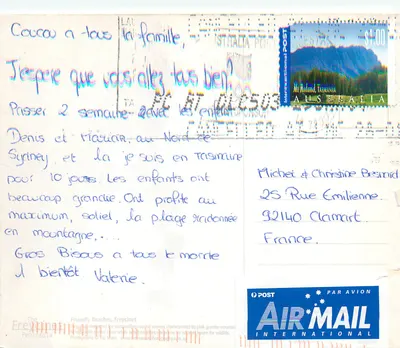 Coucou a tous la famille,
J'espere que vous allez tous bien?
Passer 2 semaine avec les enfants
Denis et au Nord de
Sydney, et la je suis en Tasmanie
pour 10 jours. Les enfants ont
beaucoup grandie. Ont profite au
maximum, soleil, la plage randonnée
en montagne,...
Gros Bisous a tous le monde
A bientôt Valerie.
POST
Mt Roland, TASMANIA
AUSTRALIA
Michel & Christine
25 Rue Emilienne.
92140 Clamart.
France.
POST
PAR AVION
AIR MAIL
INTERNATIONAL